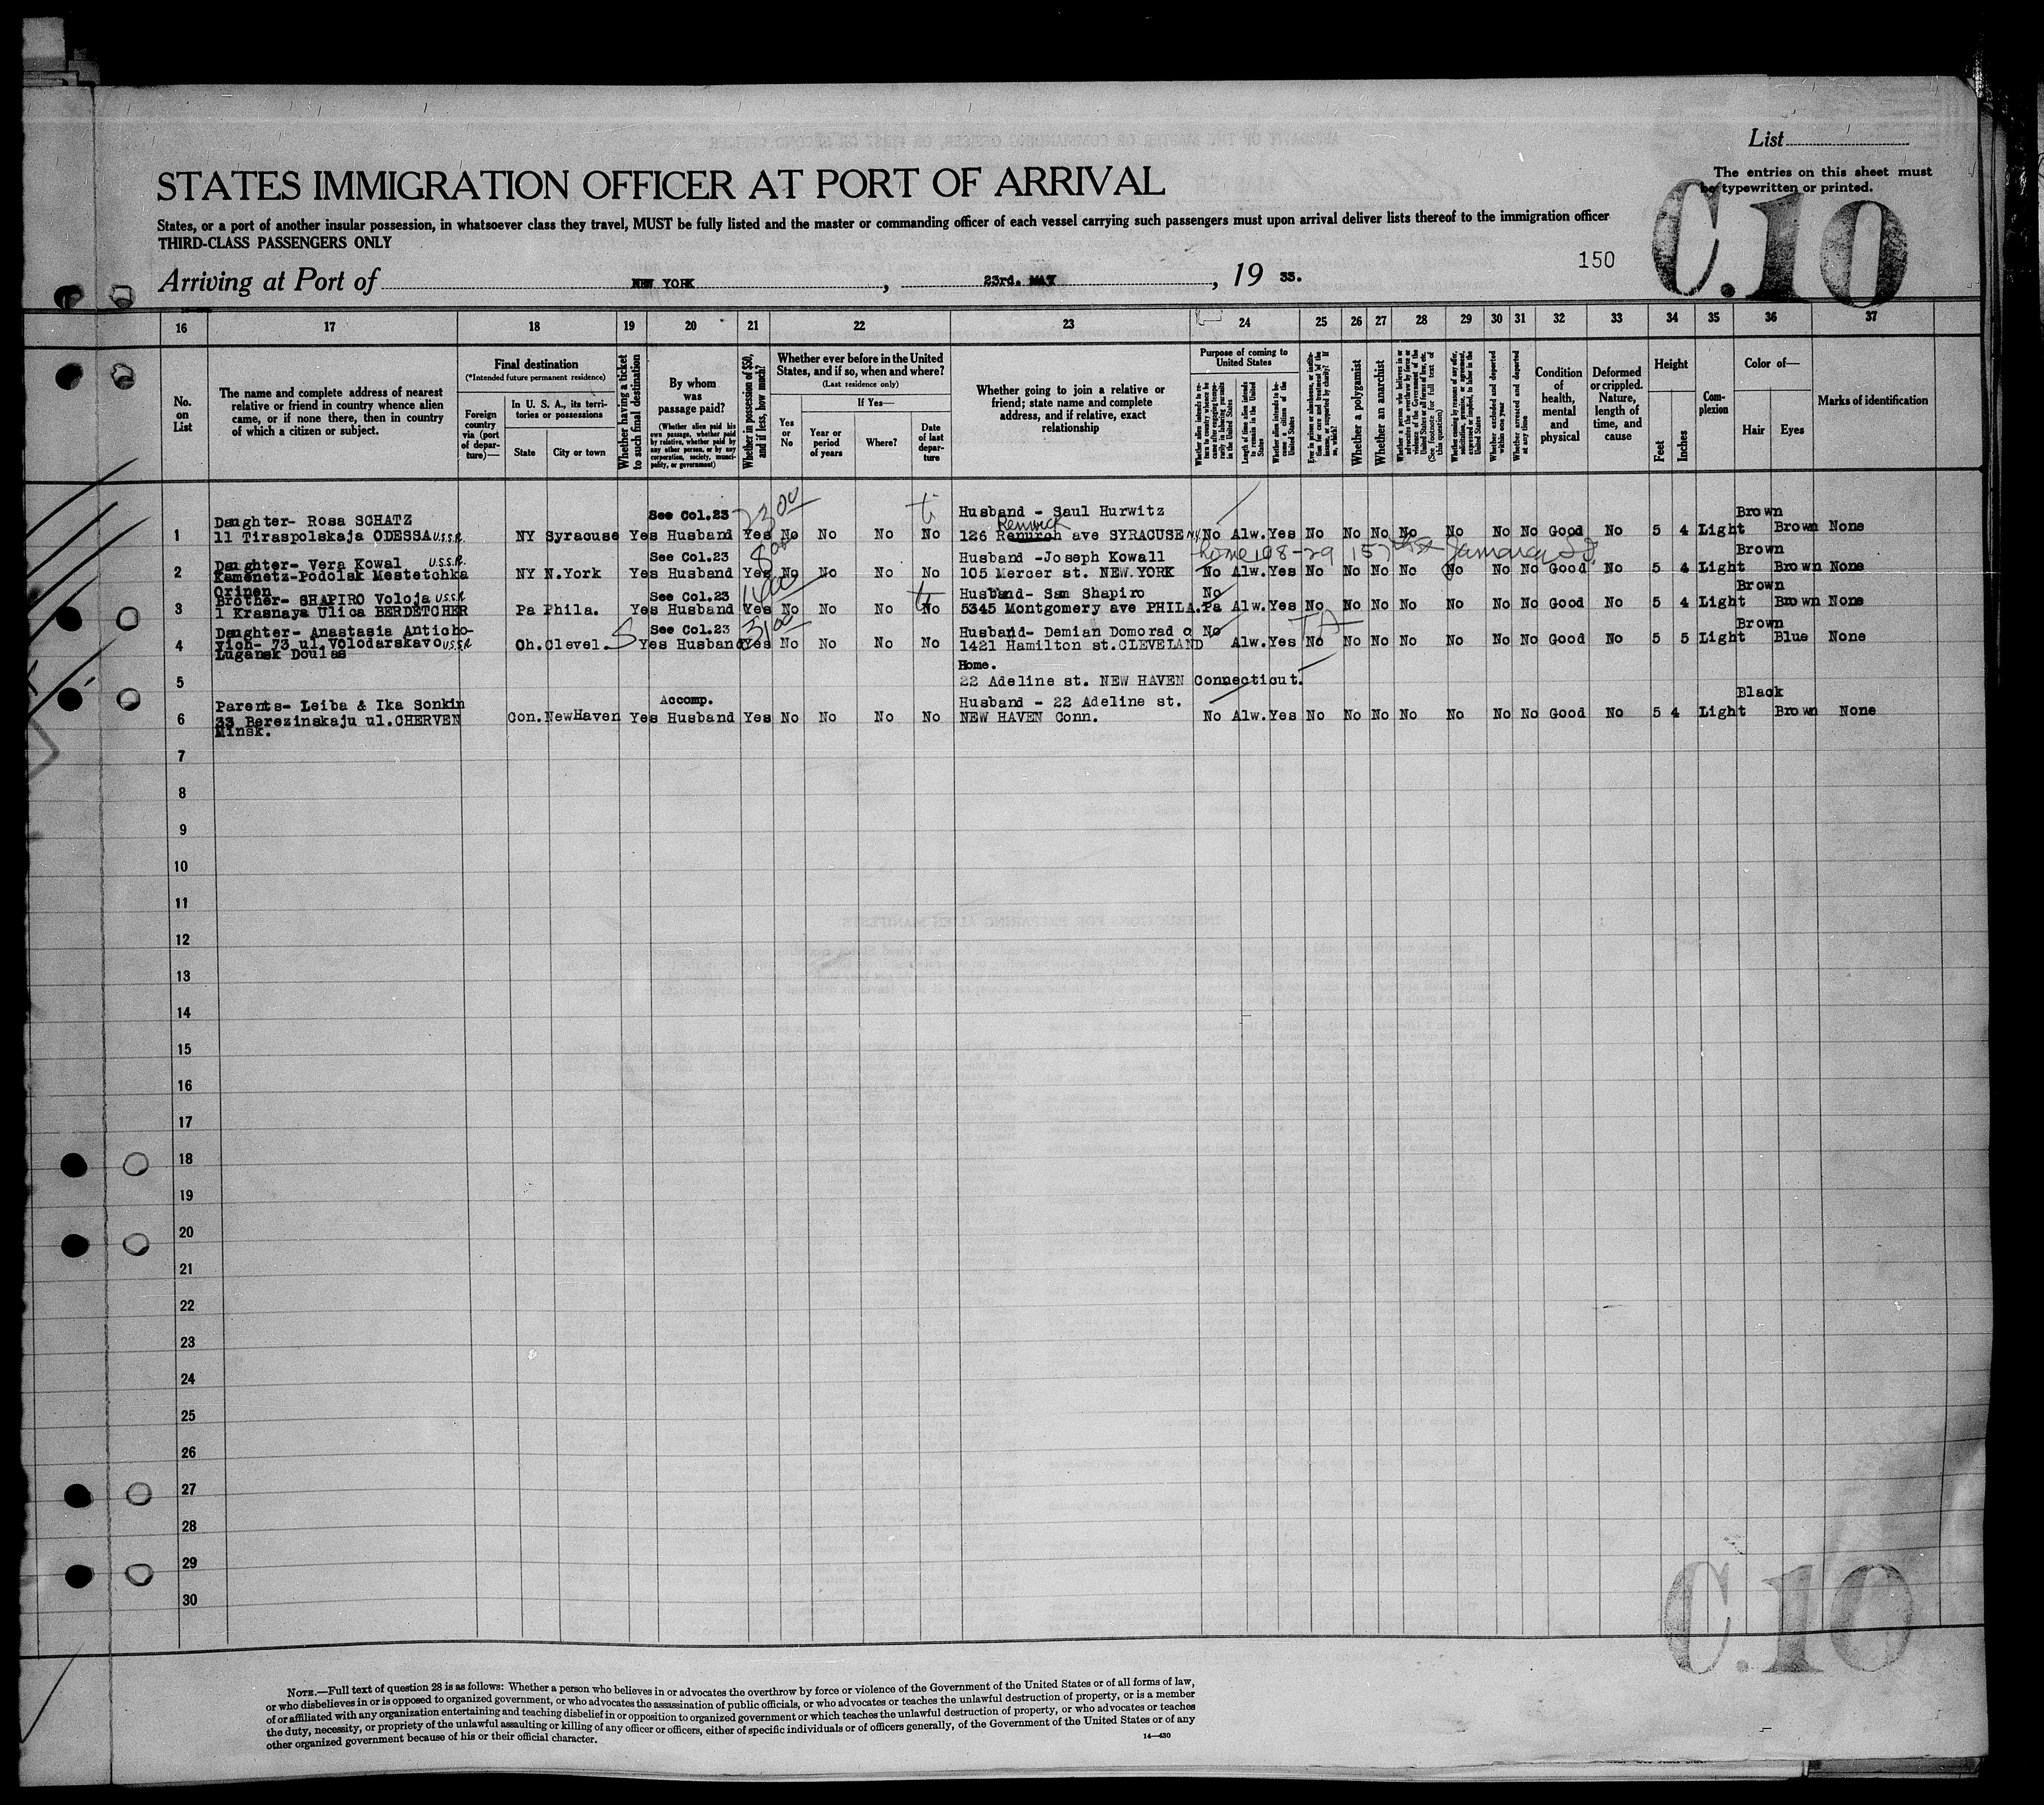 List
The entries on this sheet must
be typewritten or printed.
C.10
STATES IMMIGRATION OFFICER AT PORT OF ARRIVAL
States, or a port of another insular possession, in whatsoever class they travel, MUST be fully listed and the master or commanding officer of each vessel carrying such passengers must upon arrival deliver lists thereof to the immigration officer
THIRD-CLASS PASSENGERS ONLY
150
Arriving at Port of NEW YORK, 23rd. MAY, 19 33.
16 17 18 19 20 21 22 23 24 25 26 27 28 29 30 31 32 33 34 35 36 37
No. on List
The name and complete address of nearest relative or friend in country whence alien came, or if none there, then in country of which a citizen or subject.
Final destination
(*Intended future permanent residence)
Foreign country via (port of departure)—
In U. S. A., its territories or possessions
State
City or town
Whether having a ticket to such final destination
By whom was passage paid?
(Whether alien paid his own passage, whether paid by relative, whether paid by any other person, or by any corporation, society, municipality, or government)
Whether in possession of $50, and if less, how much?
Whether ever before in the United States, and if so, when and where?
(Last residence only)
Yes or No
If Yes—
Year or period of years
Where?
Date of last departure
Whether going to join a relative or friend; state name and complete address, and if relative, exact relationship
Purpose of coming to United States
Length of time alien intends to remain in the United States
Whether alien intends to become a citizen of the United States
Whether a polygamist
Whether an anarchist
Whether excluded and deported within one year
Whether arrested and deported at any time
Condition of health, mental and physical
Deformed or crippled. Nature, length of time, and cause
Height
Feet
Inches
Complexion
Color of—
Hair
Eyes
Marks of identification
1 Daughter- Rosa SCHATZ
11 Tiraspolskaja ODESSA U.S.S.R. NY Syracuse Yes See Col.23 Husband Yes 23 00 No No No Husband - Saul Hurwitz
126 Renurch Renwick ave SYRACUSE NY No Alw. Yes No No No No No No No Good No 5 4 Light Brown Brown None
2 Daughter- Vera Kowal U.S.S.R.
Kamenetz-Podolsk Mestetchka
Orinen NY N.York Yes See Col.23 Husband Yes 8 00 No No No No Husband -Joseph Kowall
105 Mercer st. NEW YORK home 108-29 157 st Jamaica No Alw. Yes No No No No No No No Good No 5 4 Light Brown Brown None
3 Brother- SHAPIRO Voloja U.S.S.R
1 Krasnaya Ulica BERDETCHER Pa Phila. Yes See Col.23 Husband Yes No No No No Husband- Sam Shapiro
5345 Montgomery ave PHILA.Pa No Alw. Yes No No No No No No No Good No 5 4 Light Brown Brown None
4 Daughter- Anastasia Anticho-
vich- 73 ul.Volodarskavo U.S.S.R
Lugansk Doulas Oh. Clevel. Yes See Col.23 Husband Yes 31 00 No No No No Husband- Demian Domorad
1421 Hamilton st.CLEVELAND No Alw. Yes No No No No No No No Good No 5 5 Light Brown Blue None
5 Home.
22 Adeline st. NEW HAVEN Connecticut.
6 Parents- Leiba & Ika Sonkin
33 Berezinskaju ul.CHERVEN
Minsk. Con. NewHaven Yes Accomp. Husband Yes No No No No Husband - 22 Adeline st.
NEW HAVEN Conn. No Alw. Yes No No No No No No No Good No 5 4 Light Black Brown None
7
8
9
10
11
12
13
14
15
16
17
18
19
20
21
22
23
24
25
26
27
28
29
30
C.10
NOTE.—Full text of question 28 is as follows: Whether a person who believes in or advocates the overthrow by force or violence of the Government of the United States or of all forms of law,
or who disbelieves in or is opposed to organized government, or who advocates the assassination of public officials, or who advocates or teaches the unlawful destruction of property, or is a member
of or affiliated with any organization entertaining and teaching disbelief in or opposition to organized government or which teaches the unlawful destruction of property, or who advocates or teaches
the duty, necessity, or propriety of the unlawful assaulting or killing of any officer or officers, either of specific individuals or of officers generally, of the Government of the United States or of any
other organized government because of his or their official character.
14—430